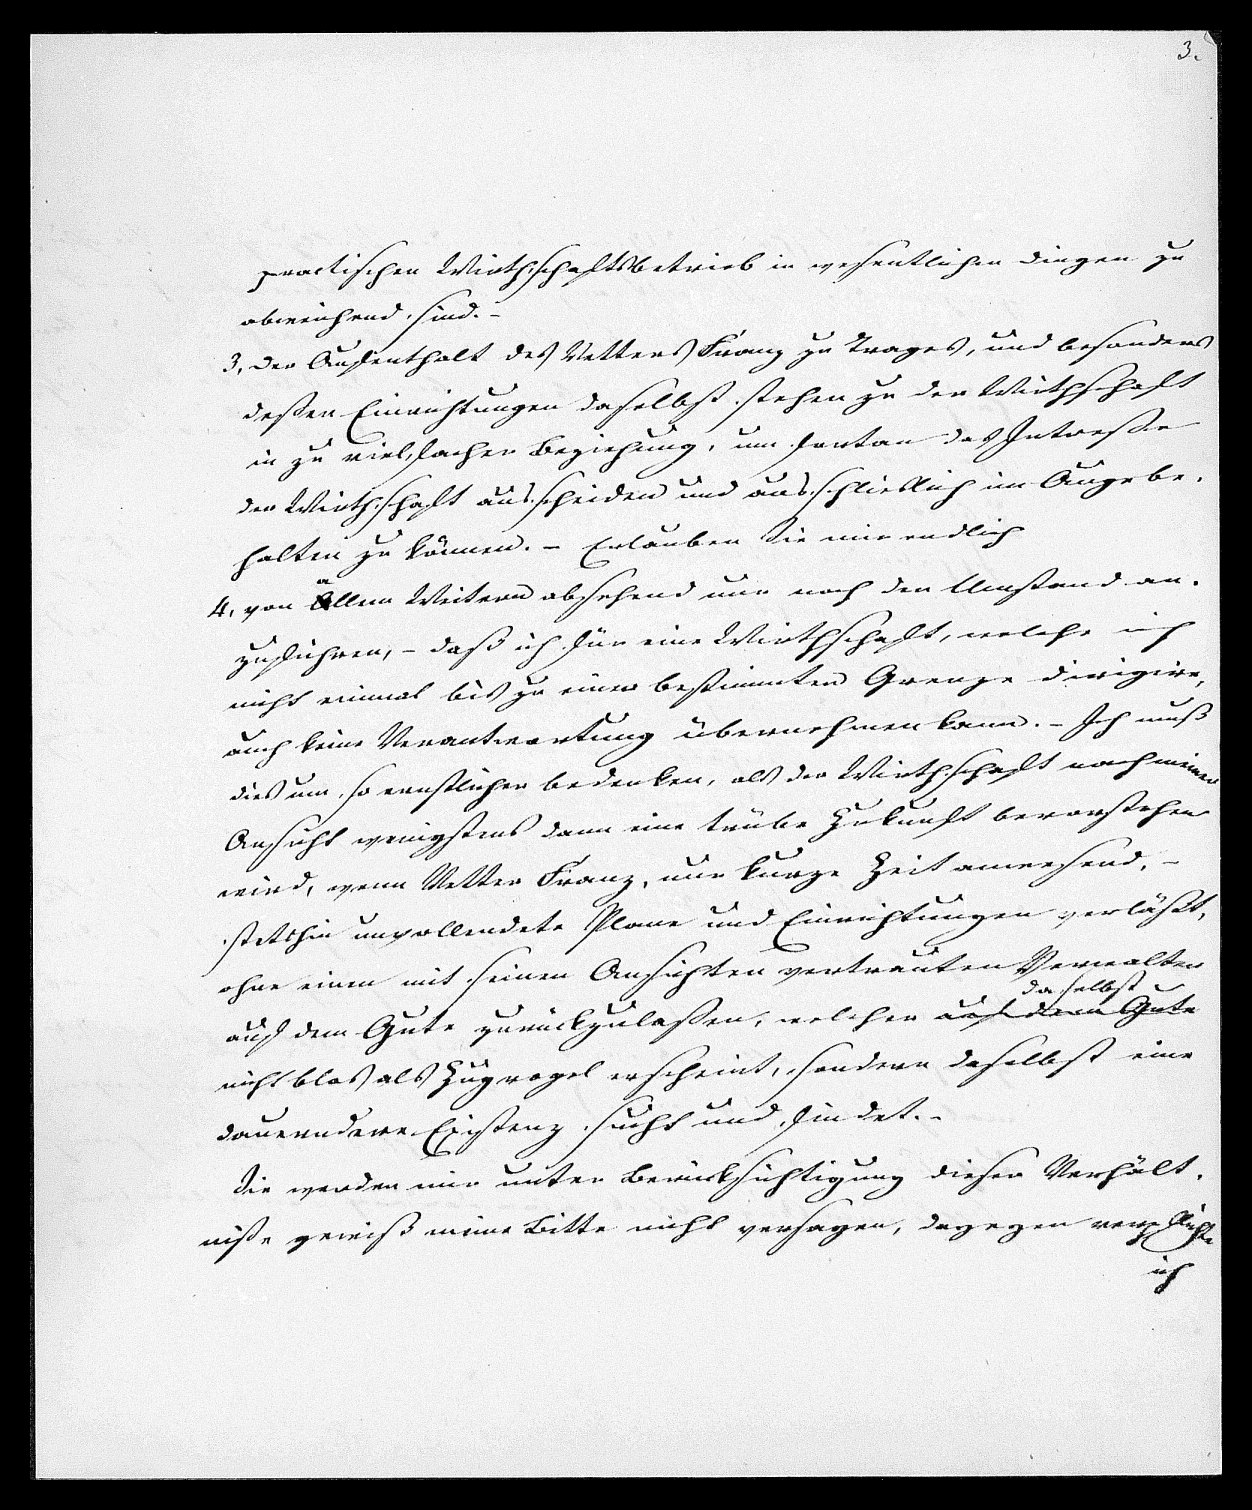 3.
practischen Wirthschaftsbetrieb in wesentlichen Dingen zu
abweichend sind. –
3, der Aufenthalt des Vetters Franz zu Trages, und besonders
deßen Einrichtungen daselbst stehen zu der Wirthschaft
in zu vielfacher Beziehung, um fortan das Intereße
der Wirthschaft ausscheiden und ausschließlich im Auge be-
halten zu können. – Erlauben Sie mir endlich
4, von allem Weitern absehend nur noch den Umstand an-
zuführen, – daß ich für eine Wirthschaft, welche ich
nicht einmal bis zu einer bestimmten Grenze dirigire,
auch keine Verantwortung übernehmen kann. – Ich muß
dies um so ernstlicher bedenken, als der Wirthschaft nach meiner
Ansicht wenigstens dann eine trübe Zukunft bevorstehen
wird, wenn Vetter Franz, nur kurze Zeit anwesend, –
stetshin unvollendete Plane und Einrichtungen verläßt,
ohne einen mit seinen Ansichten vertrauten Verwalter
daselbst
auf dem Gute zurückzulaßen, welcher auf dem Gute
nicht blos als Zugvogel erscheint, sondern daselbst eine
dauerndere Existenz sucht und findet. –
Sie werden mir unter Berücksichtigung dieser Verhält-
niße gewiß meine Bitte nicht versagen, dagegen verpflichte
ich